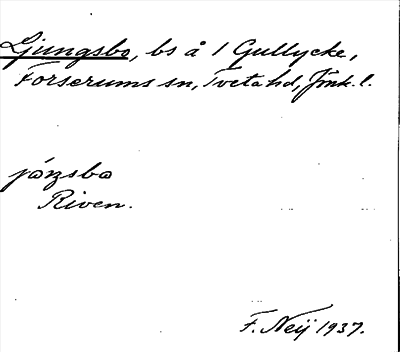 Ljungsbo, bs å 1 Gullycke,
Forserums sn, Tveta hd, Jönk. l.
Riven.
F. Neij 1937.